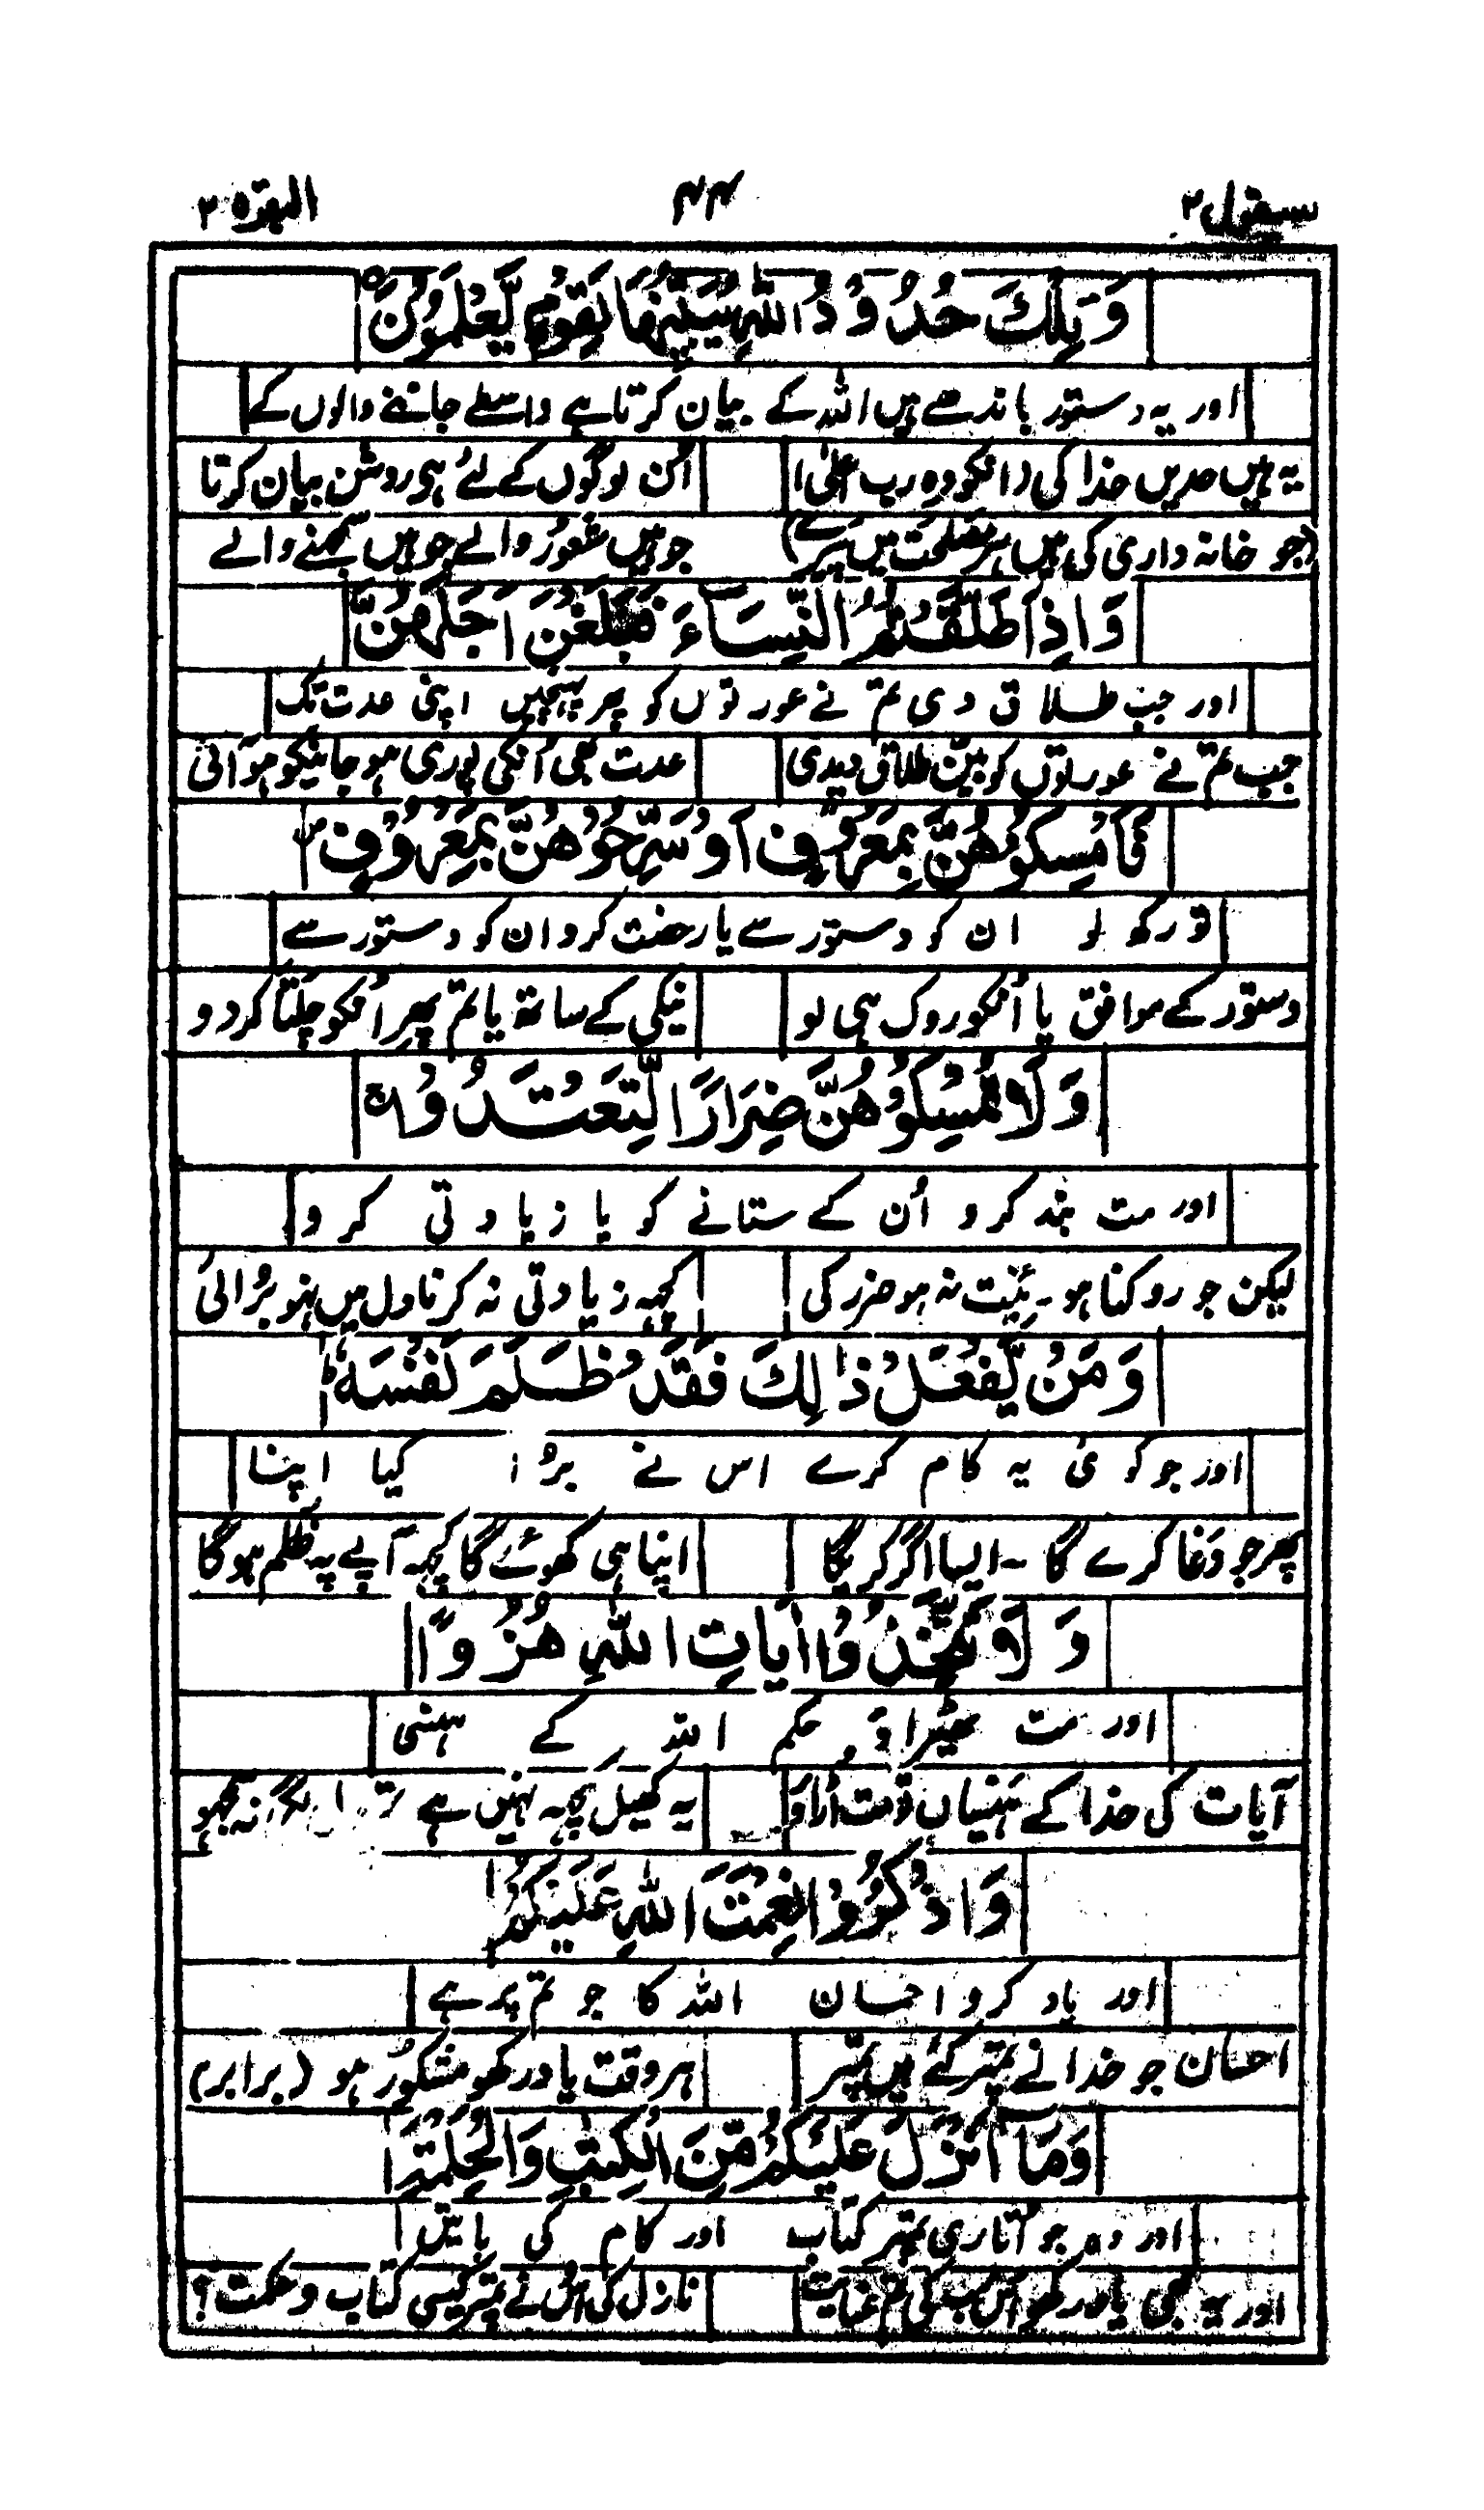 سیقول ۲ ۴۴ البقرة ۲
وَتِلْكَ حُدُوْدُ اللهِ يُبَيِّنُهَا لِقَوْمٍ يَّعْلَمُوْنَ
اور یہ دستور باندھے ہیں اللہ کے بیان کرتا ہے واسطے جاننے والوں کے
یہ ہیں حدیں خدا کی انکو وہ رب اعلیٰ اُن لوگوں کے لئے ہی روشن بیان کرتا
(جو خانہ داری کی ہیں ہر مصلحت میں) جو ہیں شعور والے جو ہیں سمجھنے والے
وَاِذَا طَلَّقْتُمُ النِّسَآءَ فَبَلَغْنَ اَجَلَهُنَّ
اور جب طلاق دی تم نے عورتوں کو پھر پہنچیں اپنی عدت تک
جب تم نے عورتوں کو بین طلاق دیدی عدت بھی اُنکی پوری ہو جانیکو ہو آئی
فَاَمْسِكُوْهُنَّ بِمَعْرُوْفٍ اَوْ سَرِّحُوْهُنَّ بِمَعْرُوْفٍ
تو رکھ لو ان کو دستور سے یا رخصت کرو ان کو دستور سے
دستور کے موافق یا اُنکو روک ہی لو نیکی کے ساتھ یا تم پھر اُنکو چلتا کردو
وَلَا تُمْسِكُوْهُنَّ ضِرَارًا لِّتَعْتَدُوْا
اور مت بند کرو اُن کے ستانے کو یا زیادتی کرو
لیکن جو روکنا ہو۔ نیت نہ ہو ضرر کی کچھ زیادتی نہ کرنا دل میں نہو بُرائی
وَمَنْ يَّفْعَلْ ذٰلِكَ فَقَدْ ظَلَمَ نَفْسَهٗ
اور جو کوئی یہ کام کرے اس نے بڑا کیا اپنا
پھر جو دغا کرے گا۔ ایسا اگر کریگا اپنا ہی کھوئے گا کچھ آپے پہ ظلم ہوگا
وَلَا تَتَّخِذُوْا اٰيَاتِ اللهِ هُزُوًا
اور مت ٹھیراؤ حکم اللہ کے ہنسی
آیات کی خدا کے ہنسیاں تو مت اڑاؤ یہ کھیل کچھ نہیں ہے نہ سمجھو
وَاذْكُرُوْا نِعْمَتَ اللهِ عَلَيْكُمْ
اور یاد کرو احسان اللہ کا جو تم پر ہے
احسان جو خدا نے تمپر کئے ہیں ہر وقت یاد رکھو مشکور ہو (برابر)
وَمَآ اَنْزَلَ عَلَيْكُمْ مِّنَ الْكِتٰبِ وَالْحِكْمَةِ
اور وہ جو اُتاری تمپر کتاب اور کام کی باتیں
اور یہ بھی یاد رکھو نازل کی اس نے تمپر کیسی کتاب و حکمت؟